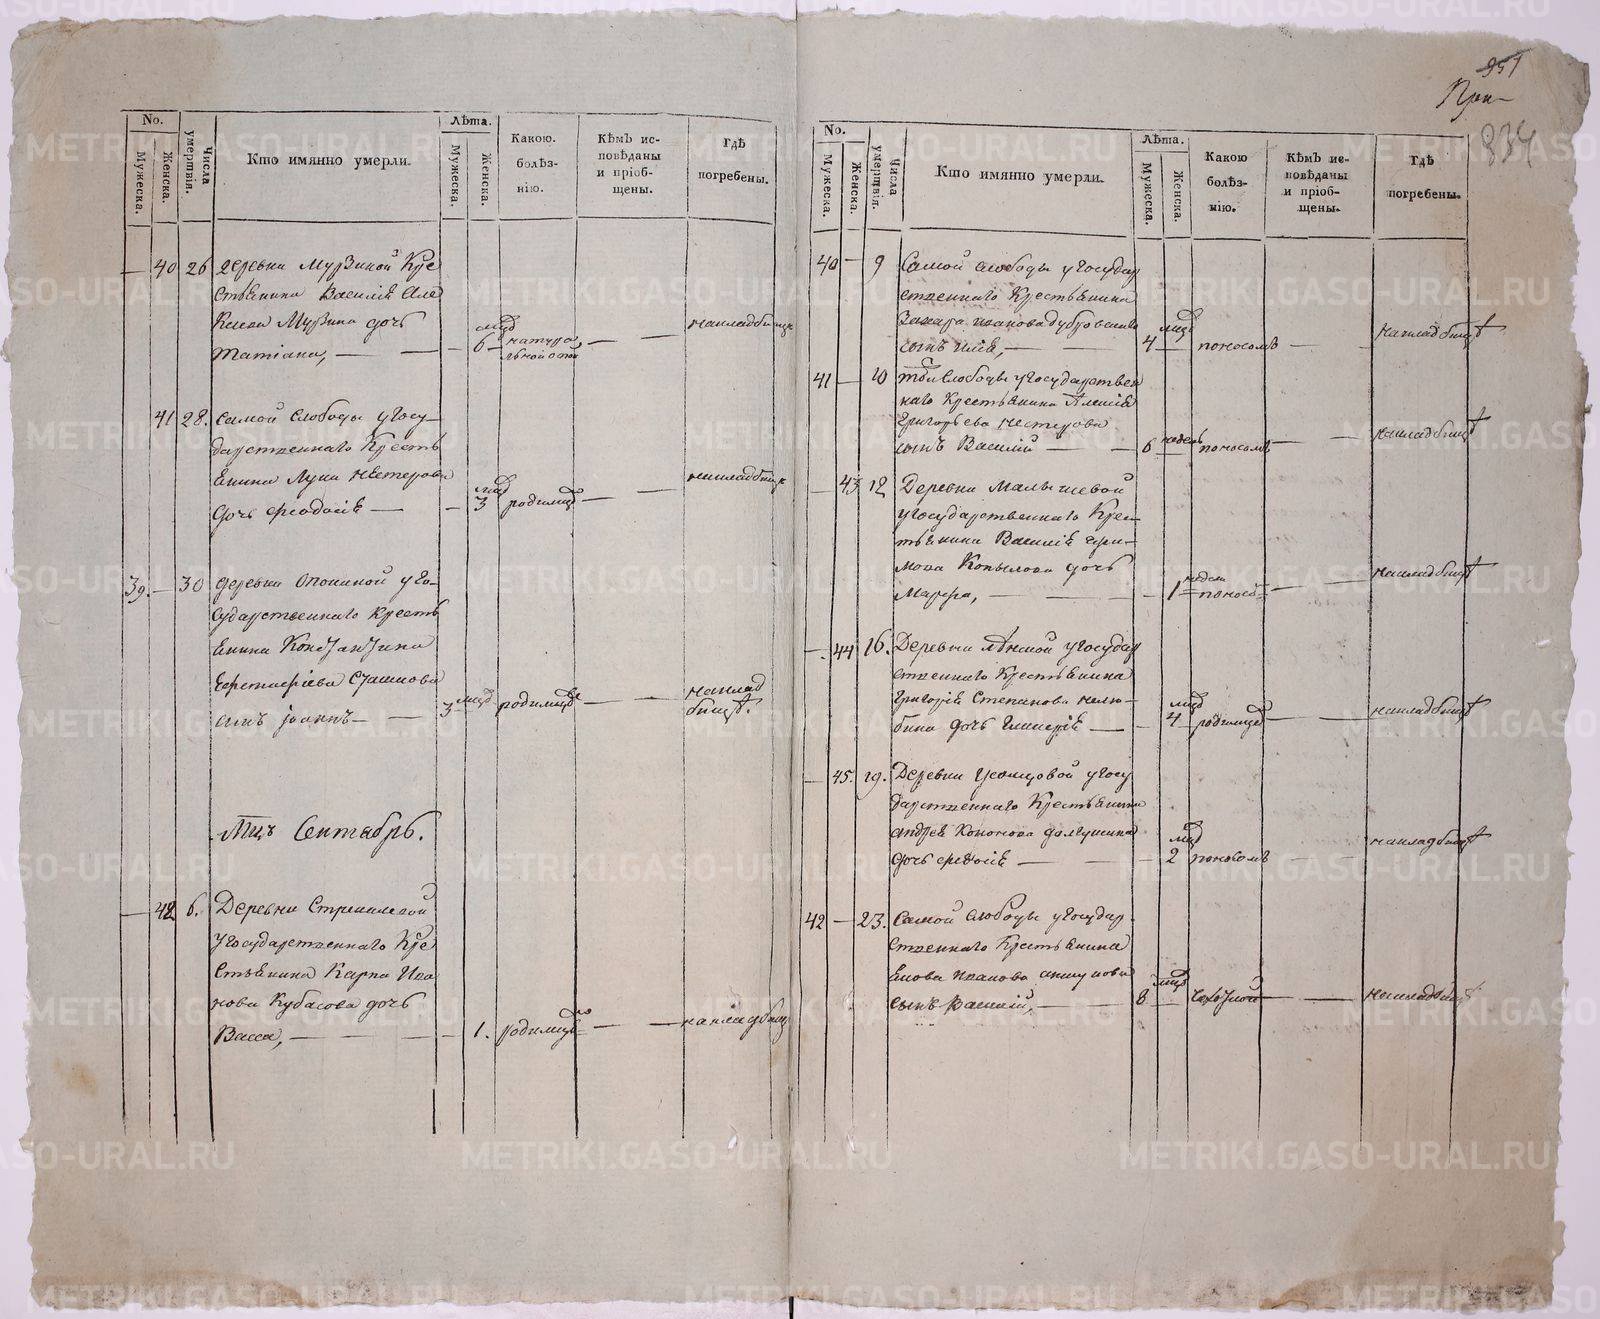 951
При-
834
No.
Мужеска.
Женска.
Числа умертвія.
Кто имянно умерли.
Лѣта.
Мужеска.
Женска.
Какою.
болѣз-
нію.
Кѣмъ ис-
повѣданы
и пріоб-
щены.
Гдѣ
погребены.
— 40 26 деревни Мурзиной Кре
стьянина Василія Але
Мурзина дочь
Татіана, — — 6 мцъ натура
льной оспой — — на кладбищѣ
41 28. самой слободы у Госу-
дарственнаго Кресть
янина Луки Нестерова
дочь Феодосія — — 3 мцъ родимцъ — — на кладбищѣ
39. — 30 деревни у Го-
сударственнаго Кресть
янина Константина
сынъ Іоаннъ — — 3 мцъ родимцъ — — на клад
бищѣ.
Мцъ Сентябрь.
— 42 6. Деревни
у Государственнаго Кре
стьянина Карпа Ива
нова Кубасова дочь
Васса, — — 1. родимцъ — — на кладбищѣ
No.
Мужеска.
Женска.
Числа умертвія.
Кто имянно умерли.
Лѣта.
Мужеска.
Женска.
Какою
болѣз-
нію.
Кѣмъ ис-
повѣданы
и пріоб-
щены.
Гдѣ
погребены.
40 — 9 Самой слободы у Государ
ственнаго Крестьянина
Захара Иванова
сынъ Илія, — 4 мцъ — поносомъ — — на кладбищѣ
41 — 10 той Слободы у Государствен
наго Крестьянина Алексія
Григорьева Нестерова
сынъ Василій — — 6 недель поносомъ — — на кладбищѣ
— 43 12 Деревни Малышевой
у Государственнаго Крес-
тьянина Василія
Копылова дочь
Марѳа, — — 1 недели поносо — — на кладбищѣ
— 44 16. Деревни у Государ
ственнаго Крестьянина
Григорія Степанова Нелю-
бина дочь Гликерія — — 4 мцъ родимцъ — — на кладбищѣ
— 45. 19. Деревни у Госу
дарственнаго Крестьянина
Андрея Кононова
дочь — — 2 мцъ поносомъ — — на кладбищѣ
42 — 23. Самой Слободы у Государ-
ственнаго Крестьянина
Іакова Иванова
сынъ Василій, — 8 мцъ — — — на кладбищѣ
METRIKI.GASO-URAL.RU